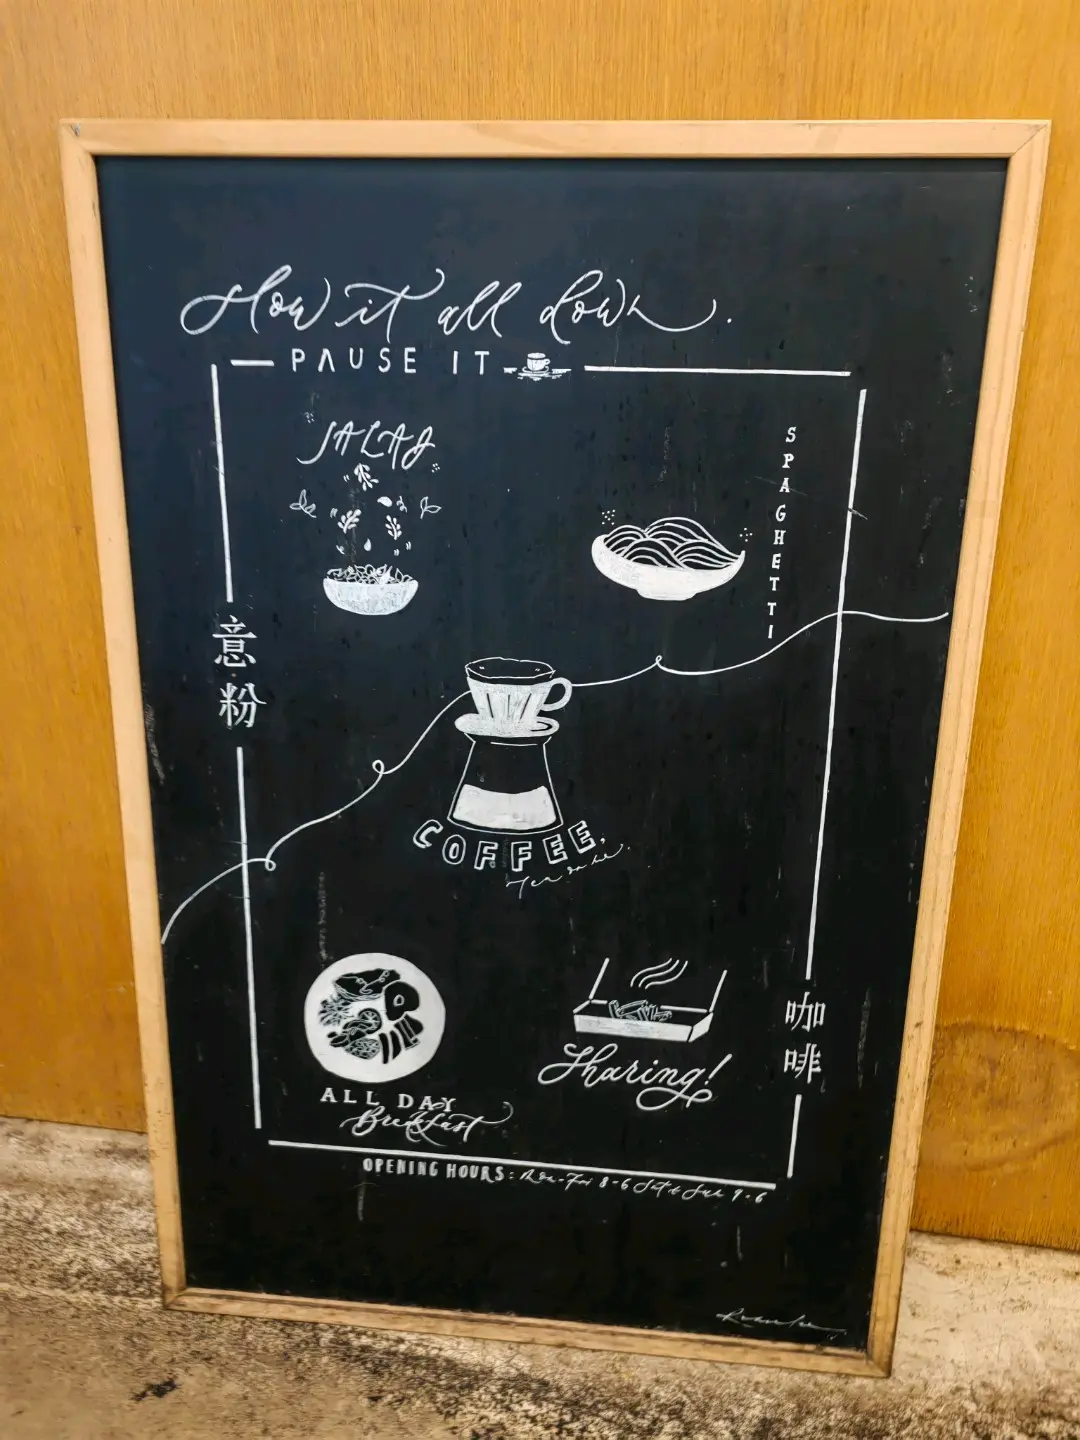 Slow it all down.
PAUSE IT
SALAD
SPAGHETTI
意粉
COFFEE,
Tea or be.
咖啡
ALL DAY
Breakfast
Sharing!
OPENING HOURS: Mon-Fri 8-6 Sat & Sun 9-6